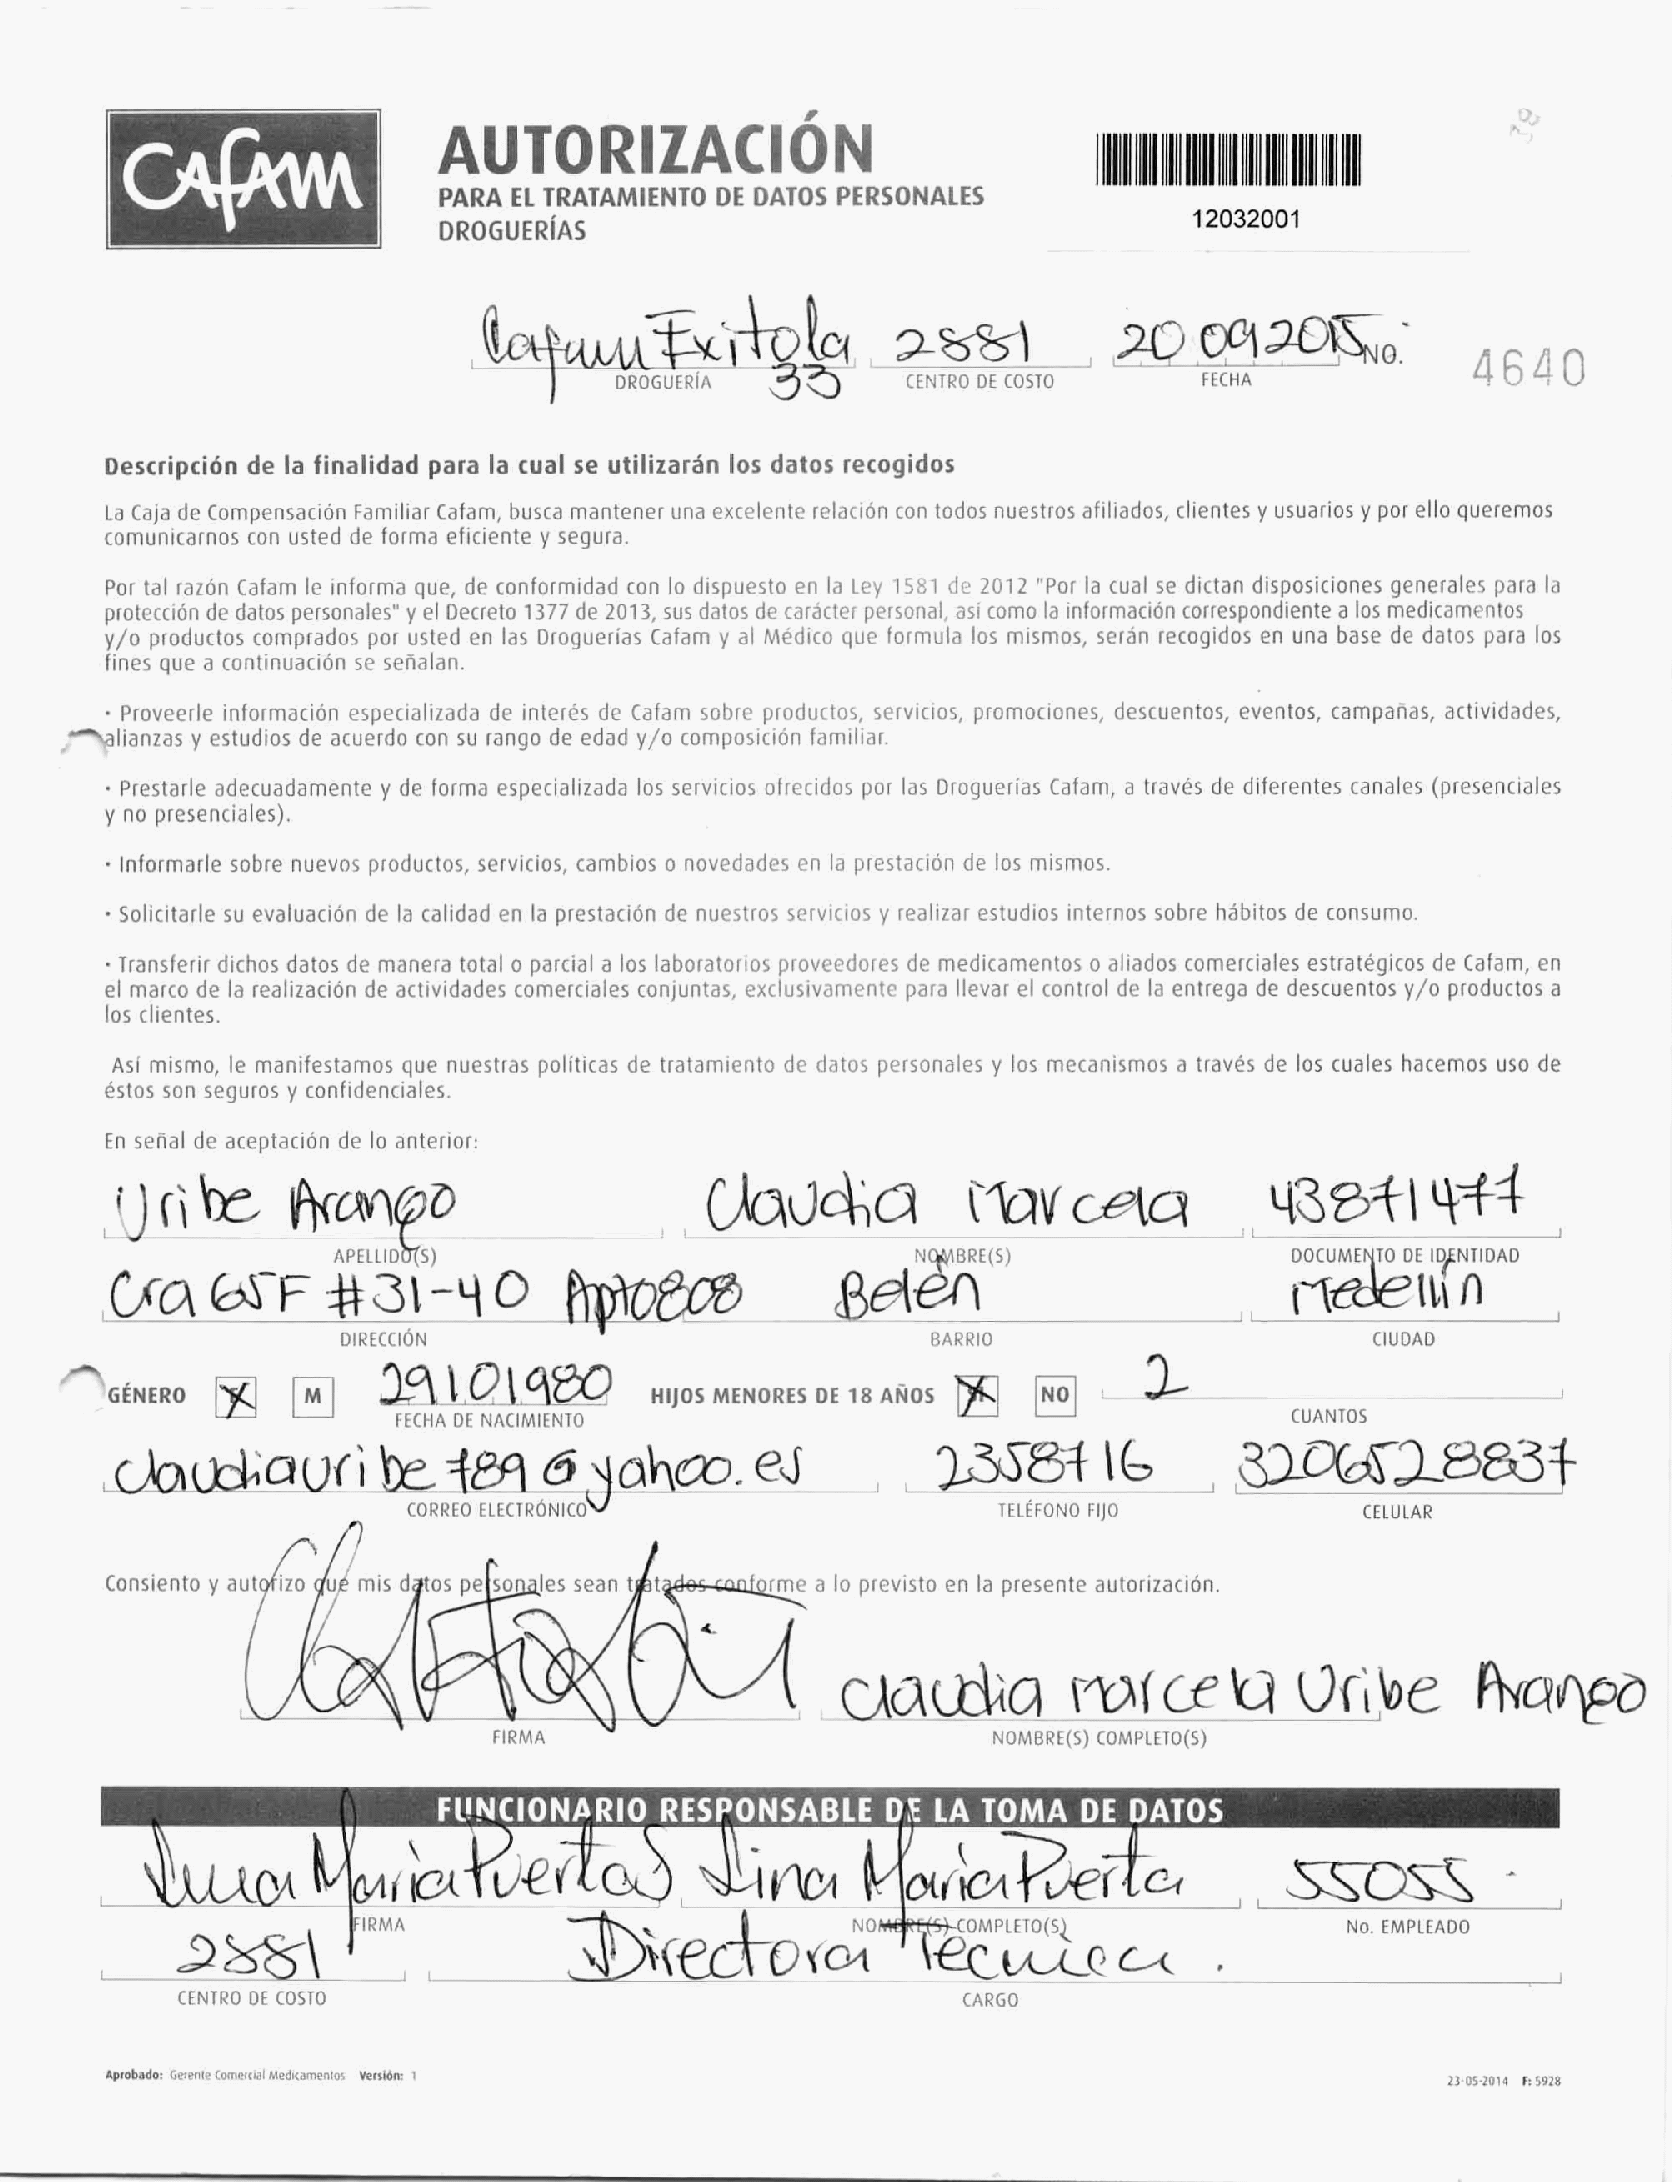 Cafam
AUTORIZACIÓN
PARA EL TRATAMIENTO DE DATOS PERSONALES
DROGUERÍAS
12032001
38
Cafam Exito la 33 2881 20 09 2015 NO. 4640
DROGUERÍA CENTRO DE COSTO FECHA
Descripción de la finalidad para la cual se utilizarán los datos recogidos
La Caja de Compensación Familiar Cafam, busca mantener una excelente relación con todos nuestros afiliados, clientes y usuarios y por ello queremos
comunicarnos con usted de forma eficiente y segura.
Por tal razón Cafam le informa que, de conformidad con lo dispuesto en la Ley 1581 de 2012 "Por la cual se dictan disposiciones generales para la
protección de datos personales" y el Decreto 1377 de 2013, sus datos de carácter personal, así como la información correspondiente a los medicamentos
y/o productos comprados por usted en las Droguerías Cafam y al Médico que formula los mismos, serán recogidos en una base de datos para los
fines que a continuación se señalan.
· Proveerle información especializada de interés de Cafam sobre productos, servicios, promociones, descuentos, eventos, campañas, actividades,
alianzas y estudios de acuerdo con su rango de edad y/o composición familiar.
· Prestarle adecuadamente y de forma especializada los servicios ofrecidos por las Droguerías Cafam, a través de diferentes canales (presenciales
y no presenciales).
· Informarle sobre nuevos productos, servicios, cambios o novedades en la prestación de los mismos.
· Solicitarle su evaluación de la calidad en la prestación de nuestros servicios y realizar estudios internos sobre hábitos de consumo.
· Transferir dichos datos de manera total o parcial a los laboratorios proveedores de medicamentos o aliados comerciales estratégicos de Cafam, en
el marco de la realización de actividades comerciales conjuntas, exclusivamente para llevar el control de la entrega de descuentos y/o productos a
los clientes.
Así mismo, le manifestamos que nuestras políticas de tratamiento de datos personales y los mecanismos a través de los cuales hacemos uso de
éstos son seguros y confidenciales.
En señal de aceptación de lo anterior:
Uribe Arango Claudia Marcela 43871477
APELLIDO(S) NOMBRE(S) DOCUMENTO DE IDENTIDAD
Cra 65F #31-40 Apto 808 Belén Medellín
DIRECCIÓN BARRIO CIUDAD
GÉNERO X M 29101980 HIJOS MENORES DE 18 AÑOS X NO 2
FECHA DE NACIMIENTO CUANTOS
claudiauribe789@yahoo.es 2358716 3206528837
CORREO ELECTRÓNICO TELÉFONO FIJO CELULAR
Consiento y autorizo que mis datos personales sean tratados conforme a lo previsto en la presente autorización.
Claudia Marcela Uribe Arango
FIRMA NOMBRE(S) COMPLETO(S)
FUNCIONARIO RESPONSABLE DE LA TOMA DE DATOS
Lina Maria Puerta S Lina Maria Puerta 55055
FIRMA NOMBRE(S) COMPLETO(S) No. EMPLEADO
2881 Directora Tecnica.
CENTRO DE COSTO CARGO
Aprobado: Gerente Comercial Medicamentos Versión: 1
23-05-2014 F: 5928